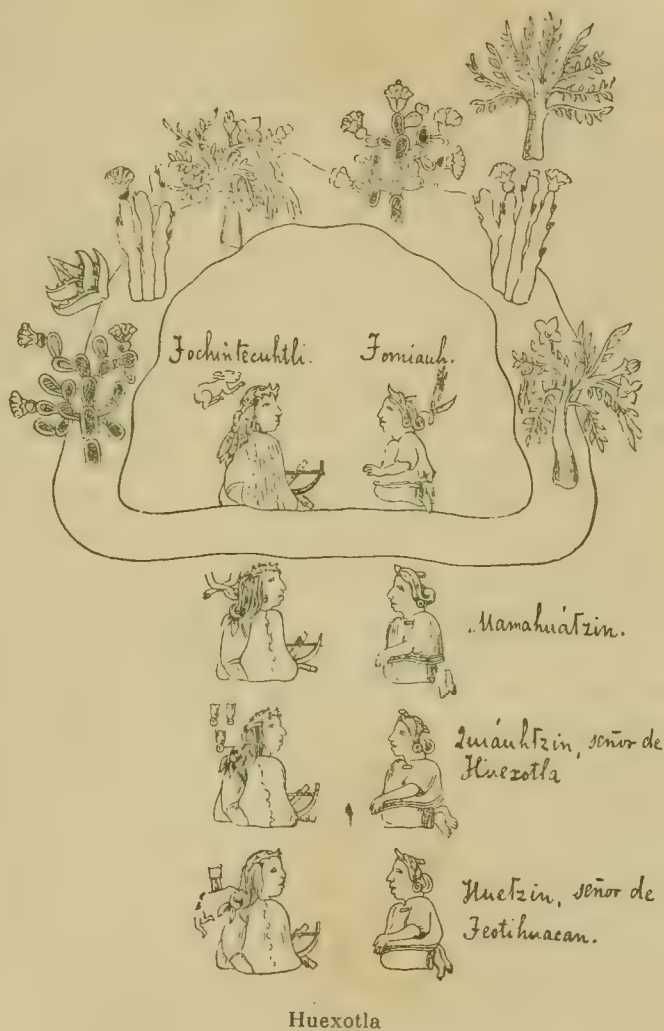 Tochintecuhtli. Tomiauh.
Mamahuátzin.
Quiáuhtzin, señor de
Huexotla
Huetzin, señor de
Teotihuacan.
Huexotla